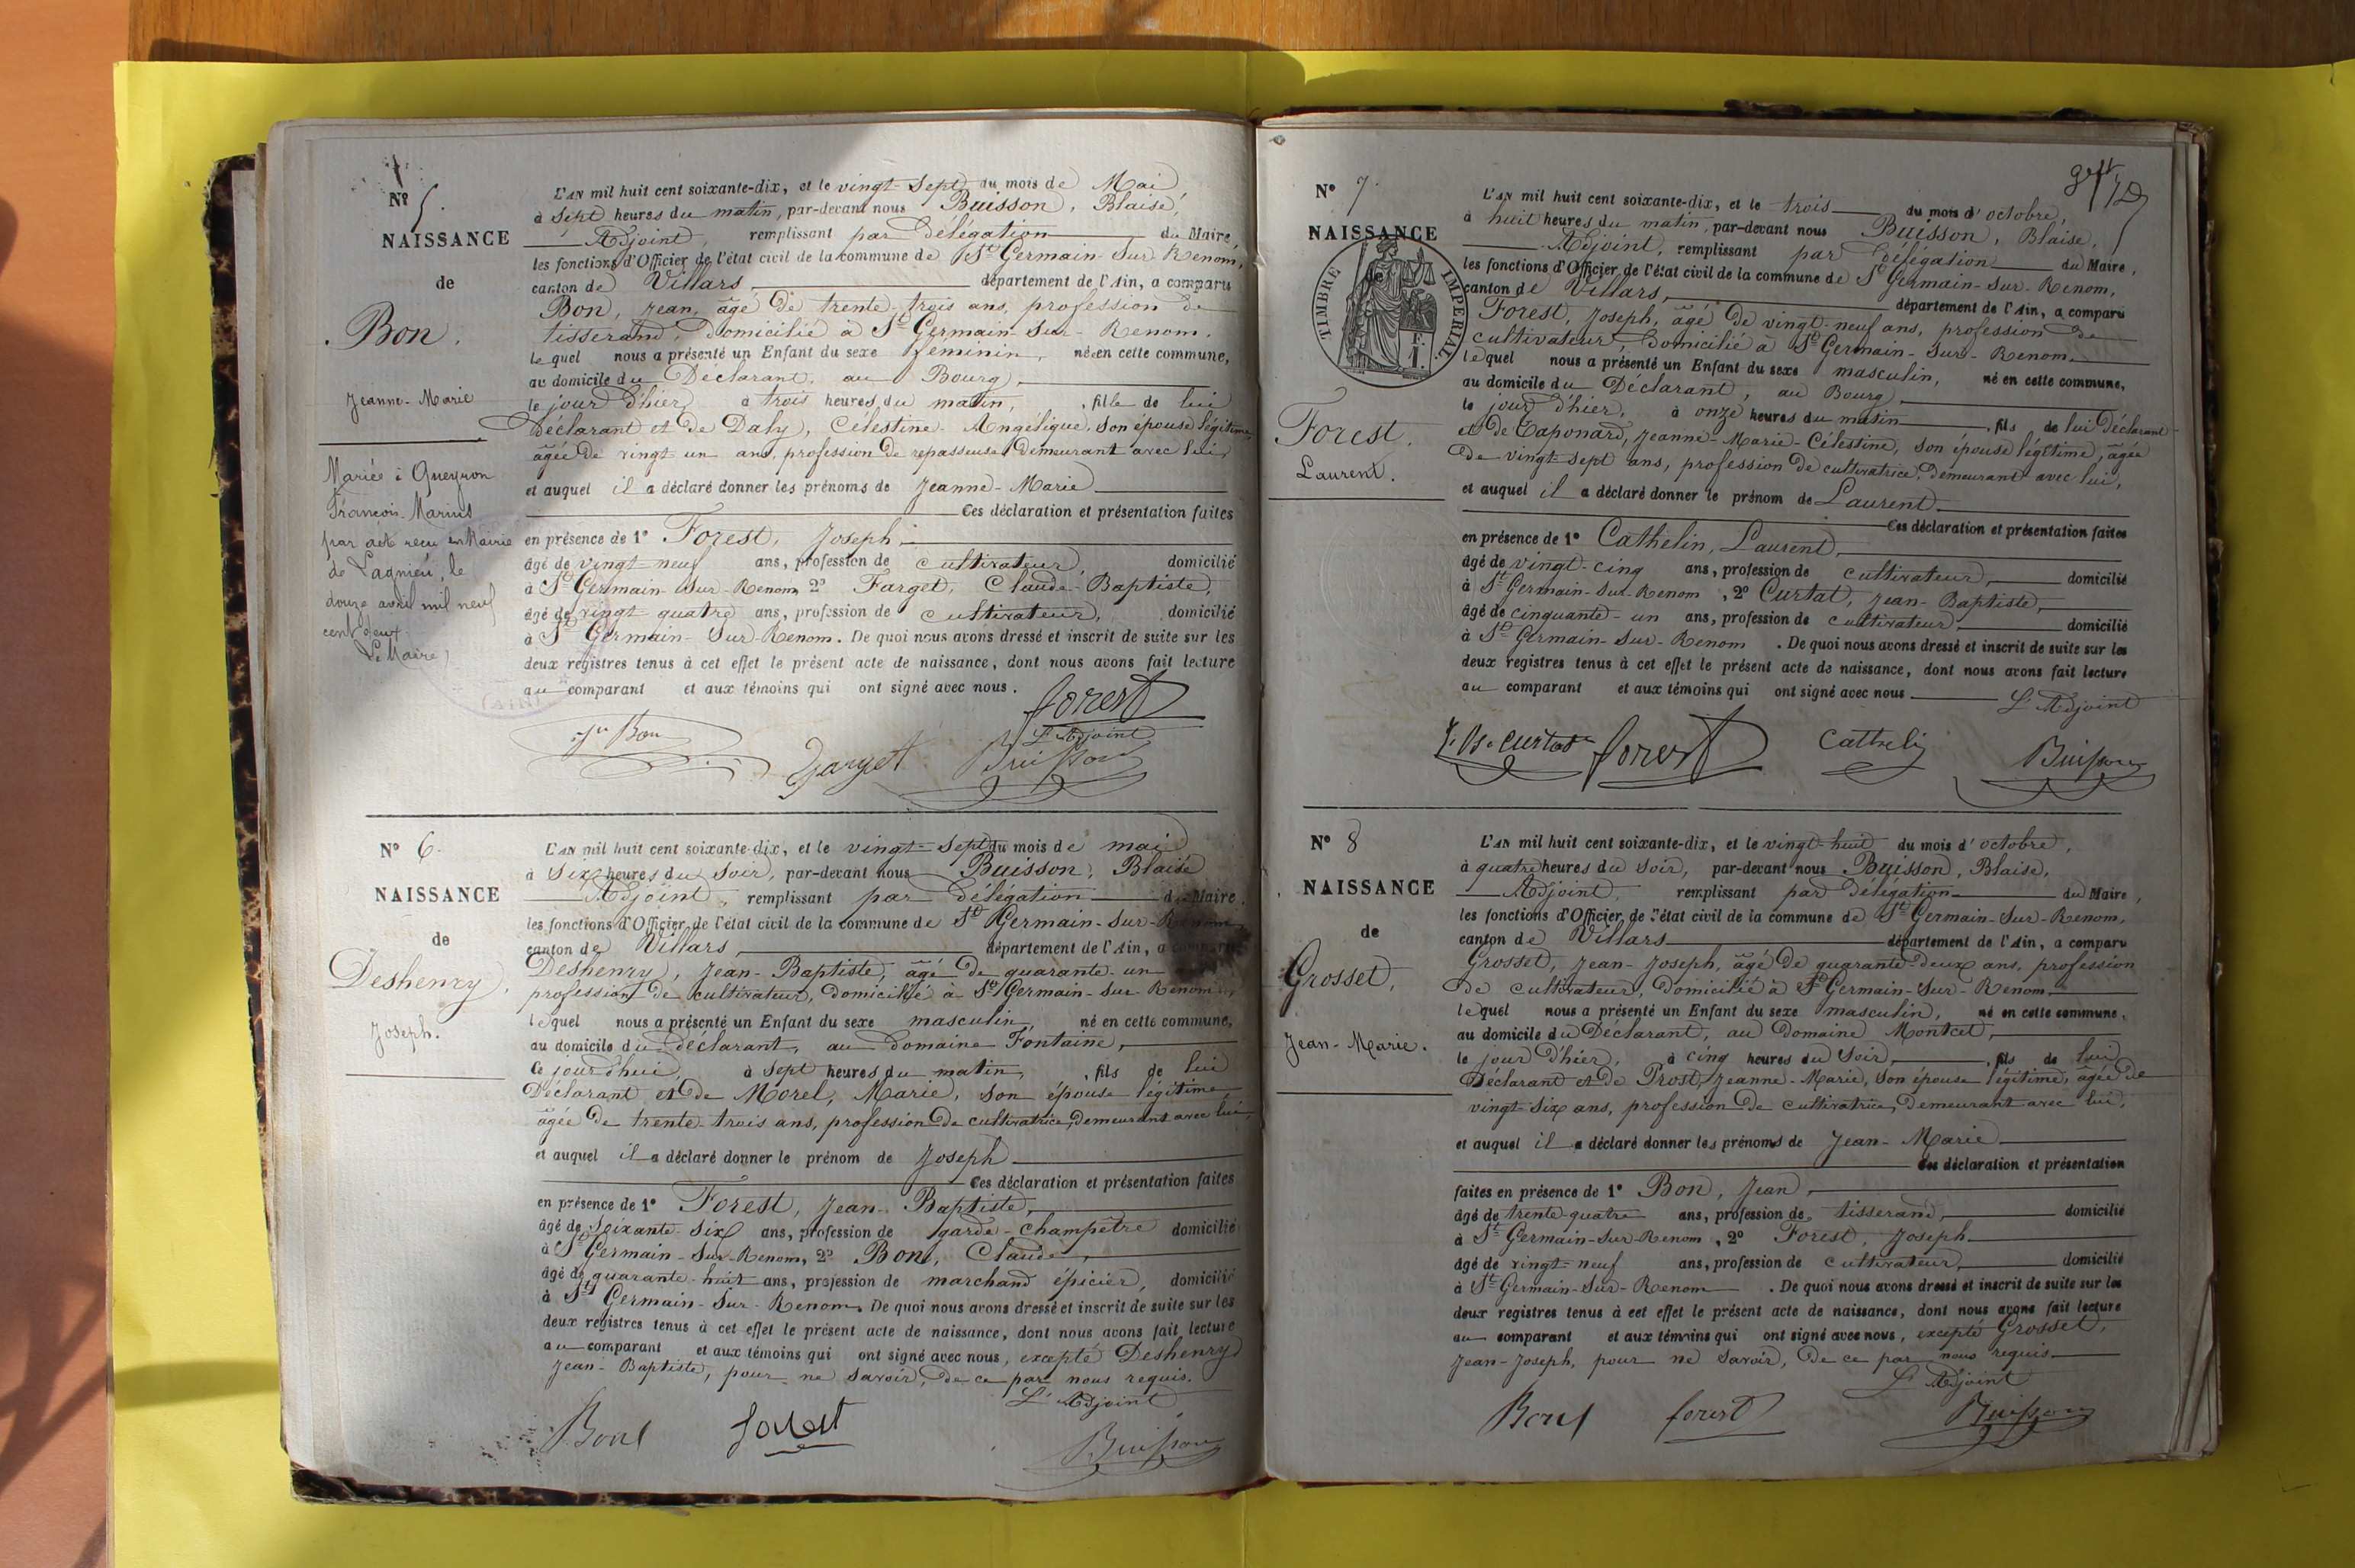 N° 5.
NAISSANCE
de
Bon.
Jeanne-Marie
Mariée à Queyron
François-Marius
par acte reçu en Mairie
de Lagnieu, le
douze avril mil neuf
cent deux
Le Maire,
L'AN mil huit cent soixante-dix, et le vingt-Sept du mois de Mai,
à Sept heures du matin, par-devant nous Buisson, Blaise,
Adjoint, remplissant par délégation du Maire,
les fonctions d'Officier de l'état civil de la commune de St Germain-Sur-Renom,
canton de Villars, département de l'Ain, a comparu
Bon, Jean, âgé de trente-trois ans, profession de
tisserand, domicilié à St Germain-Sur-Renom,
lequel nous a présenté un Enfant du sexe féminin, née en cette commune,
au domicile du Déclarant, au Bourg,
le jour d'hier, à trois heures du matin, , fille de lui
Déclarant et de Daly, Célestine-Angélique, son épouse légitime,
âgée de vingt un ans, profession de repasseuse, demeurant avec lui,
et auquel il a déclaré donner les prénoms de Jeanne-Marie
Ces déclaration et présentation faites
en présence de 1° Forest, Joseph,
âgé de vingt-neuf ans, profession de cultivateur, domicilié
à St Germain-Sur-Renom, 2° Farget, Claude-Baptiste,
âgé de vingt quatre ans, profession de cultivateur, domicilié
à St Germain-Sur-Renom. De quoi nous avons dressé et inscrit de suite sur les
deux registres tenus à cet effet le présent acte de naissance, dont nous avons fait lecture
au comparant et aux témoins qui ont signé avec nous.
forest
L'Adjoint
Jn Bon Farget Buisson
N° 6.
NAISSANCE
de
Deshenry,
Joseph.
L'AN mil huit cent soixante-dix, et le vingt-Sept du mois de mai
à Six heures du Soir, par-devant nous Buisson, Blaise
Adjoint, remplissant par délégation du Maire,
les fonctions d'Officier de l'état civil de la commune de St Germain-Sur-Renom
canton de Villars, département de l'Ain, a comparu
Deshenry, Jean-Baptiste, âgé de quarante-un
profession de cultivateur, domicilié à St Germain-Sur-Renom,
lequel nous a présenté un Enfant du sexe masculin, né en cette commune,
au domicile du déclarant, au domaine Fontaine,
Ce jour d'hui, à Sept heures du matin, , fils de lui
Déclarant et de Morel, Marie, son épouse légitime
âgée de trente-trois ans, profession de cultivatrice, demeurant avec lui,
et auquel il a déclaré donner le prénom de Joseph
Ces déclaration et présentation faites
en présence de 1° Forest, Jean-Baptiste,
âgé de Soixante-Six ans, profession de garde-champêtre domicilié
à St Germain-Sur-Renom, 2° Bon, Claude,
âgé de quarante-huit ans, profession de marchand épicier, domicilié
à St Germain-Sur-Renom. De quoi nous avons dressé et inscrit de suite sur les
deux registres tenus à cet effet le présent acte de naissance, dont nous avons fait lecture
au comparant et aux témoins qui ont signé avec nous, excepté Deshenry
Jean-Baptiste, pour ne savoir, de ce par nous requis.
L'Adjoint
Bon forest Buisson
N° 7.
NAISSANCE
de
TIMBRE IMPÉRIAL
Forest.
Laurent.
L'AN mil huit cent soixante-dix, et le trois du mois d'octobre,
à huit heures du matin, par-devant nous Buisson, Blaise,
Adjoint, remplissant par délégation du Maire,
les fonctions d'Officier de l'état civil de la commune de St Germain-Sur-Renom,
canton de Villars, département de l'Ain, a comparu
Forest, Joseph, âgé de vingt-neuf ans, profession de
cultivateur, domicilié à St Germain-Sur-Renom
lequel nous a présenté un Enfant du sexe masculin, né en cette commune,
au domicile du Déclarant, au Bourg,
le jour d'hier, à onze heures du matin , fils de lui Déclarant
et de Caponard, Jeanne-Marie-Célestine, son épouse légitime, âgée
de vingt-sept ans, profession de cultivatrice, demeurant avec lui,
et auquel il a déclaré donner le prénom de Laurent
Ces déclaration et présentation faites
en présence de 1° Cathelin, Laurent,
âgé de vingt-cinq ans, profession de cultivateur, domicilié
à St Germain-Sur-Renom, 2° Curtat, Jean-Baptiste,
âgé de cinquante-un ans, profession de cultivateur domicilié
à St Germain-Sur-Renom. De quoi nous avons dressé et inscrit de suite sur les
deux registres tenus à cet effet le présent acte de naissance, dont nous avons fait lecture
au comparant et aux témoins qui ont signé avec nous
L'Adjoint
curtat forest Cathelin Buisson
N° 8
NAISSANCE
de
Grosset,
Jean-Marie.
L'AN mil huit cent soixante-dix, et le vingt-huit du mois d'octobre,
à quatre heures du Soir, par-devant nous Buisson, Blaise,
Adjoint, remplissant par délégation du Maire,
les fonctions d'Officier de l'état civil de la commune de St Germain-Sur-Renom,
canton de Villars département de l'Ain, a comparu
Grosset, Jean-Joseph, âgé de quarante-deux ans, profession
de cultivateur, domicilié à St Germain-Sur-Renom
lequel nous a présenté un Enfant du sexe masculin, né en cette commune,
au domicile du Déclarant, au Domaine Montcet,
le jour d'hier, à cinq heures du Soir , fils de lui
Déclarant et de Prost, Jeanne-Marie, son épouse légitime, âgée de
vingt-six ans, profession de cultivatrice, demeurant avec lui,
et auquel il a déclaré donner les prénoms de Jean-Marie
Ces déclaration et présentation
faites en présence de 1° Bon, Jean,
âgé de trente-quatre ans, profession de tisserand, domicilié
à St Germain-Sur-Renom, 2° Forest, Joseph
âgé de vingt-neuf ans, profession de cultivateur, domicilié
à St Germain-Sur-Renom. De quoi nous avons dressé et inscrit de suite sur les
deux registres tenus à cet effet le présent acte de naissance, dont nous avons fait lecture
au comparant et aux témoins qui ont signé avec nous, excepté Grosset,
Jean-Joseph, pour ne savoir, de ce par nous requis
L'Adjoint
Bon forest Buisson